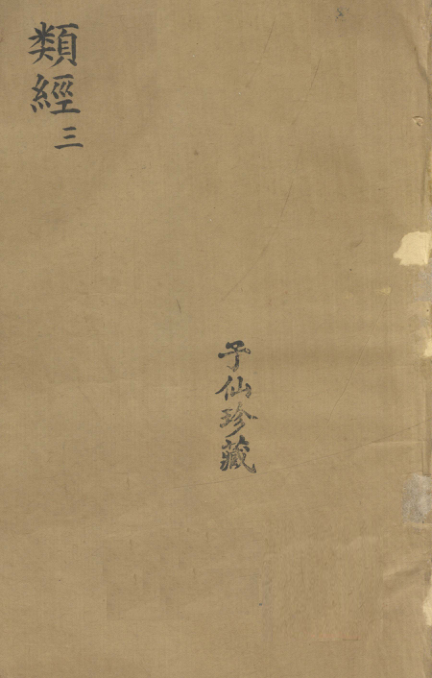 類經三
子仙珍藏